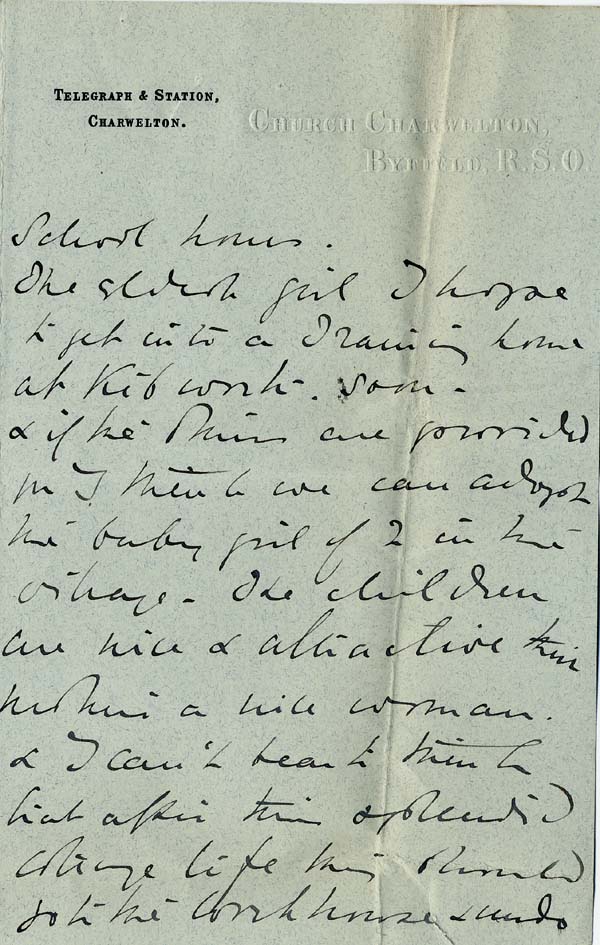 TELEGRAPH & STATION,
CHARWELTON.
CHURCH CHARWELTON,
BYFIELD, R.S.O.
School hours.
The eldest girl I hope
to get into a Training home
at Kibworth. Soon -
& if the others are provided
for I think we can adopt
the baby girl of 2 in the
village - The children
are nice & attractive their
mother a nice woman.
& I can't bear to think
that after their splendid
cottage life they should
go to the workhouse & undo